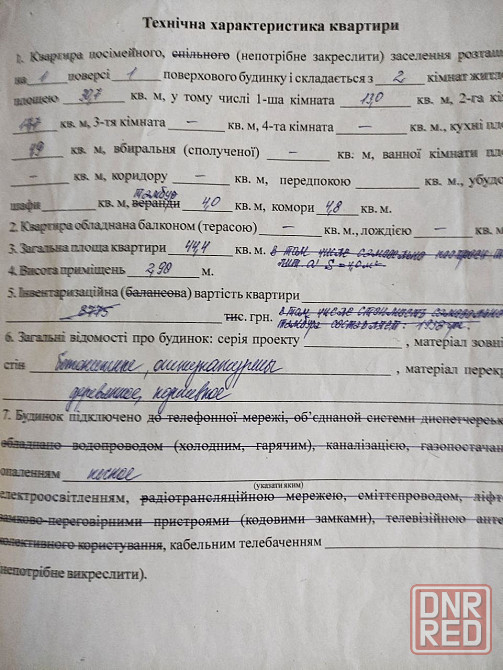 Технічна характеристика квартири
1. Квартира посімейного, спільного (непотрібне закреслити) заселення розташ
на 1 поверсі 1 поверхового будинку і складається з 2 кімнат житл
площею 30,7 кв. м, у тому числі 1-ша кімната 13,0 кв. м, 2-га кім
17,7 кв. м, 3-тя кімната — кв. м, 4-та кімната — кв. м., кухні пло
кв. м, вбиральня (сполученої) — кв. м, ванної кімнати пл
— кв. м, коридору — кв. м, передпокою кв. м., убудо
тамбур
шафи кв. м, веранди 4,0 кв. м, комори 4,8 кв. м.
2. Квартира обладнана балконом (терасою) — кв. м., лоджією — кв. м
3. Загальна площа квартири 44,4 кв. м. в том числе самовольно построен т
4. Висота приміщень 2,98 м.
5. Інвентаризаційна (балансова) вартість квартири
8775 тис. грн. в том числе стоимость самовольно
тамбура составляет:
6. Загальні відомості про будинок: серія проекту , матеріал зовні
стін , матеріал перекр
деревянное,
7. Будинок підключено до телефонної мережі, об'єднаної системи диспетчерськ
обладнано водопроводом (холодним, гарячим), каналізацією, газопостачан
опаленням печное
(указати яким)
електроосвітленням, радіотрансляційною мережею, сміттєпроводом, ліфто
замково-переговірними пристроями (кодовими замками), телевізійною анте
колективного користування, кабельним телебаченням
(непотрібне викреслити).
DNR
RED